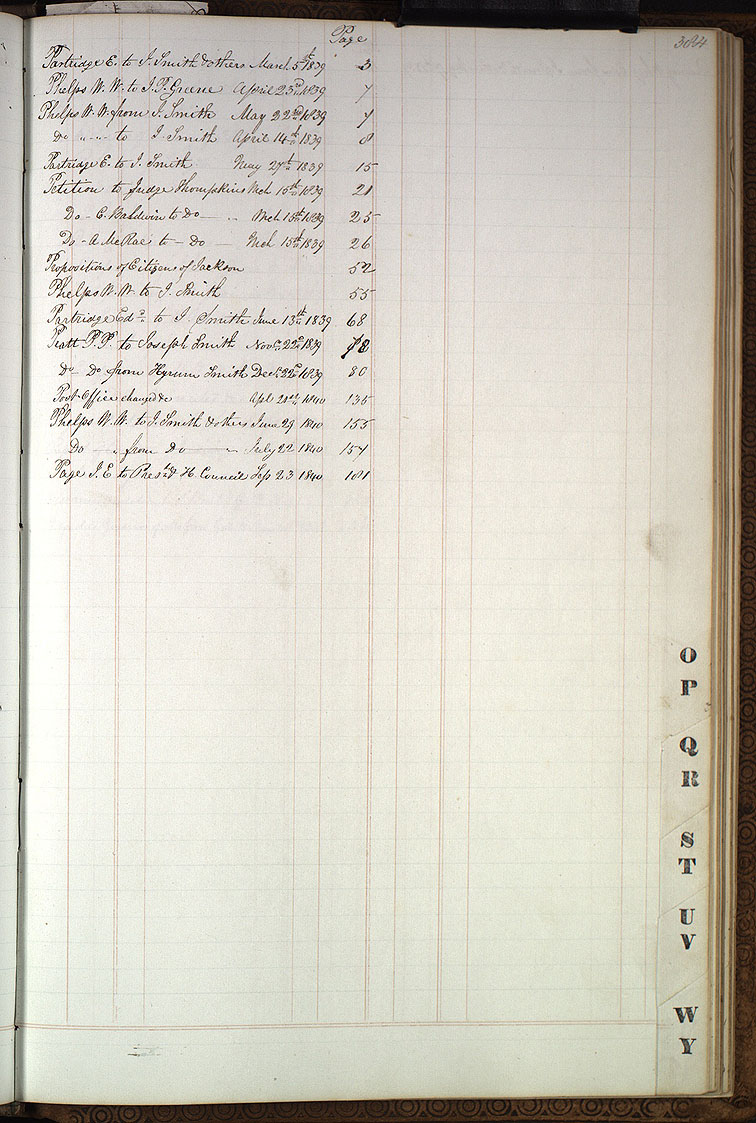 Page
384
Partridge E. to J. Smith & others March 5th 1839 3
Phelps W. W. to J. P. Greene April 23rd 1839 7
Phelps W. W. from J. Smith May 22nd 1839 7
do " " to J. Smith April 14th 1839 8
Partridge E. to J. Smith May 27th 1839 15
Petition to Judge Thompkins Mch 15th 1839 21
Do - C. Baldwin to Do — " Mch 15th 1839 25
Do - A McRae to - do — Mch 15th 1839 26
Propositions of Citizens of Jackson 52
Phelps W. W. to J. Smith 55
Partridge Edd. to J. Smith June 13th 1839 68
Pratt P. P. to Joseph Smith Novr. 22d 1839
do- Do from Hyrum Smith Decr. 22d 1839 80
Post-Office changed &c Apl 1840 135
Phelps W. W. to J. Smith & others June 29 1840 155
Do — " from Do — " July 22 1840 157
Page J. E to Prest. & H. Council Sep 23 1840 181
O
P
Q
R
S
T
U
V
W
Y